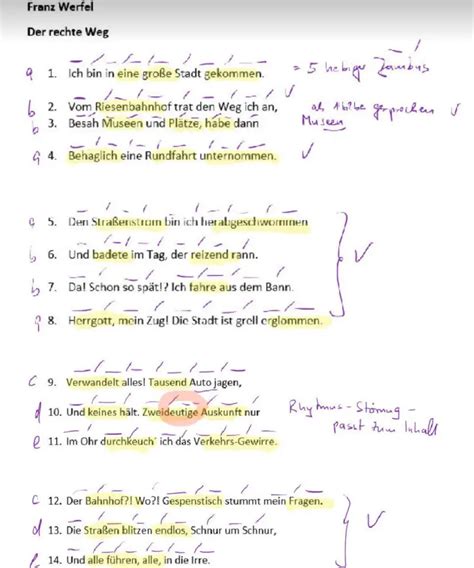 Franz Werfel
Der rechte Weg
a 1. Ich bin in eine große Stadt gekommen. = 5 hebiger Jambus
b 2. Vom Riesenbahnhof trat den Weg ich an,
b 3. Besah Museen und Plätze, habe dann
als 1 Silbe gesprochen
Museen
a 4. Behaglich eine Rundfahrt unternommen.
a 5. Den Straßenstrom bin ich herabgeschwommen
b 6. Und badete im Tag, der reizend rann.
b 7. Da! Schon so spät!? Ich fahre aus dem Bann.
a 8. Herrgott, mein Zug! Die Stadt ist grell erglommen.
c 9. Verwandelt alles! Tausend Auto jagen,
d 10. Und keines hält. Zweideutige Auskunft nur
Rhythmus-Störung -
passt zum Inhalt
e 11. Im Ohr durchkeuch' ich das Verkehrs-Gewirre.
c 12. Der Bahnhof?! Wo?! Gespenstisch stummt mein Fragen.
d 13. Die Straßen blitzen endlos, Schnur um Schnur,
14. Und alle führen, alle, in die Irre.